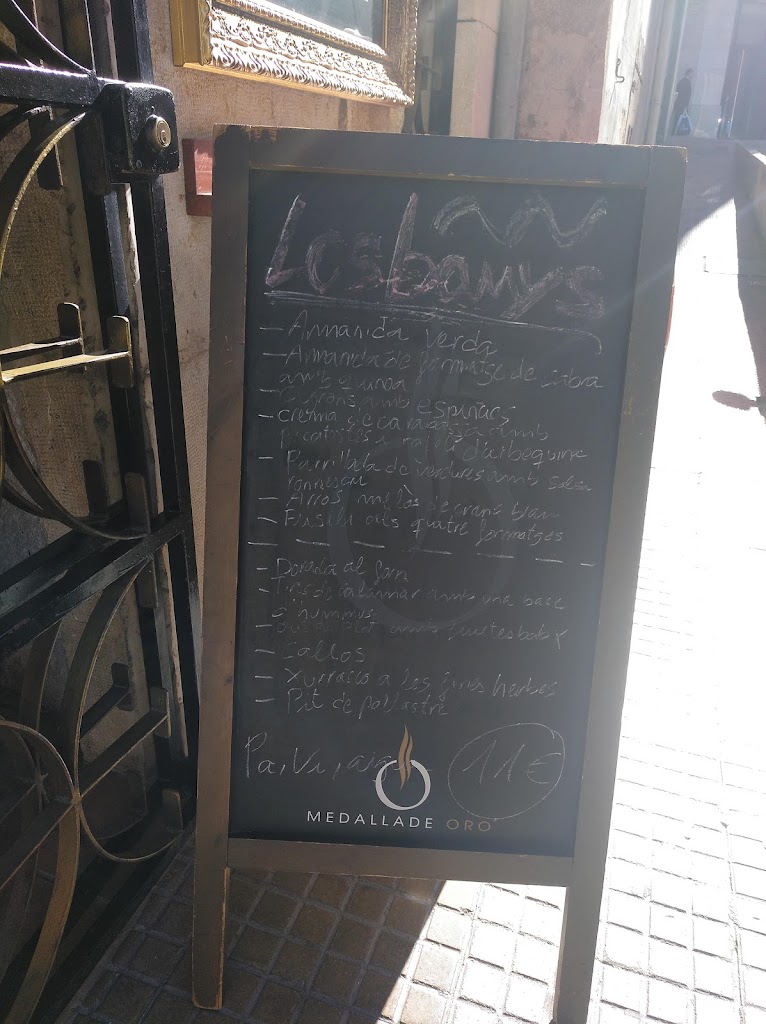 Les banys
- Amanida verda
- Amanida de formatge de cabra
amb quinoa
- Cigrons amb espinacs
- Crema de carabassa amb
picatostes i d'arbequina
- Parrillada de verdures amb salsa
romescu
- Arros melós de cranc blau
- Fusilli als quatre formatges
- Dorada al forn
- Tires de calamar amb una base
d'hummus
- amb baby
- Callos
- Xurrasco a les fines herbes
- Pit de pollastre
Pa, Vi, aigua
11€
MEDALLADE ORO